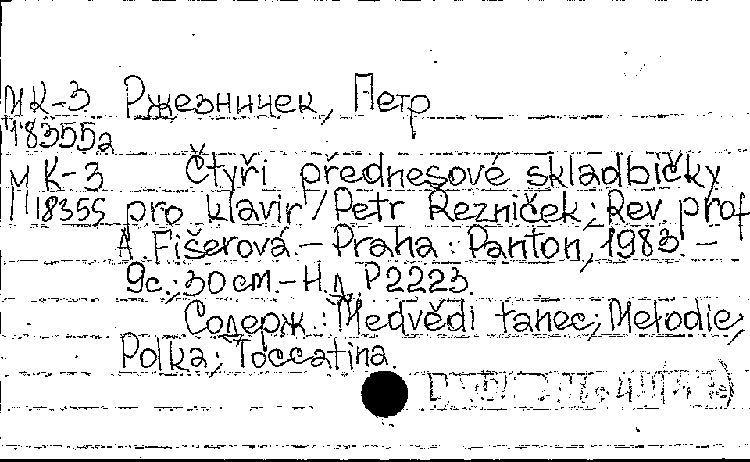 М К-3 Ржезничек, Петр
М18355а
М К-3 Čtyři přednesové skladbičky
М 18355 pro klavír / Petr Řezníček; Rev. prof
A. Fišerová. – Praha: Panton, 1983. –
9с.; 30 см. – Н.д. P2223.
Содерж.: Medvědí tanec; Melodie;
Polka; Toccatina.